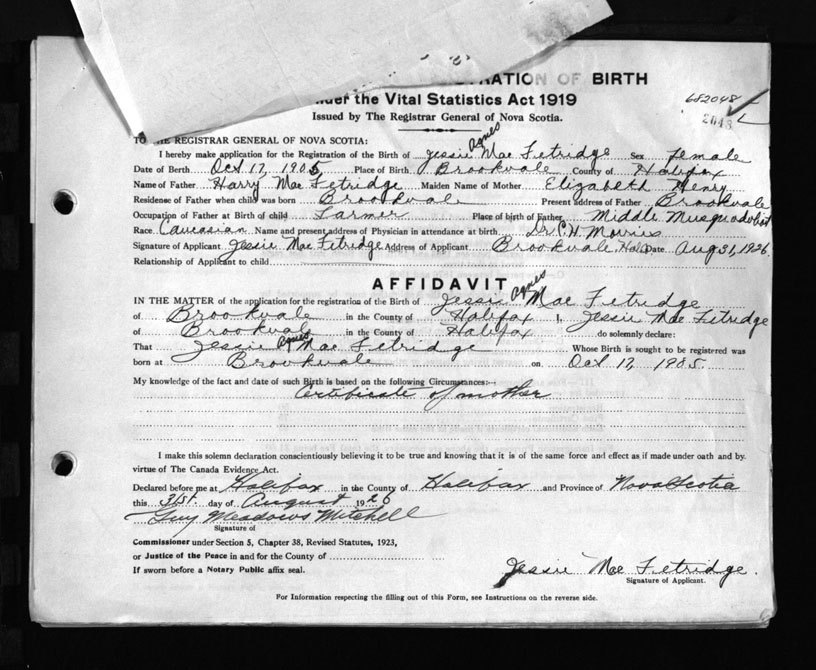 RATION OF BIRTH
under the Vital Statistics Act 1919
652048
2048
Issued by The Registrar General of Nova Scotia.
TO THE REGISTRAR GENERAL OF NOVA SCOTIA:
I hereby make application for the Registration of the Birth of Jessie Agnes Mac Fetridge Sex female
Date of Birth Oct 17, 1905 Place of Birth Brookvale County of Halifax
Name of Father Harry Mac Fetridge Maiden Name of Mother Elizabeth Henry
Residence of Father when child was born Brookvale Present address of Father Brookvale
Occupation of Father at Birth of child Farmer Place of birth of Father Middle Musquodoboit
Race Caucasian Name and present address of Physician in attendance at birth Dr. C. H. Morris
Signature of Applicant Jessie Mac Fetridge Address of Applicant Brookvale Date Aug 31, 1926
Relationship of Applicant to child
AFFIDAVIT
IN THE MATTER of the application for the registration of the Birth of Jessie Agnes Mac Fetridge
of Brookvale in the County of Halifax I, Jessie Mac Fetridge
of Brookvale in the County of Halifax do solemnly declare:
That Jessie Agnes Mac Fetridge Whose Birth is sought to be registered was
born at Brookvale on Oct 17, 1905.
My knowledge of the fact and date of such Birth is based on the following Circumstances:—
Certificate of mother
I make this solemn declaration conscientiously believing it to be true and knowing that it is of the same force and effect as if made under oath and by
virtue of The Canada Evidence Act.
Declared before me at Halifax in the County of Halifax and Province of Nova Scotia
this 31st. day of August 1926
Guy Meadows Mitchell
Signature of
Commissioner under Section 5, Chapter 38, Revised Statutes, 1923,
or Justice of the Peace in and for the County of
If sworn before a Notary Public affix seal.
Jessie Mac Fetridge.
Signature of Applicant.
For Information respecting the filling out of this Form, see Instructions on the reverse side.